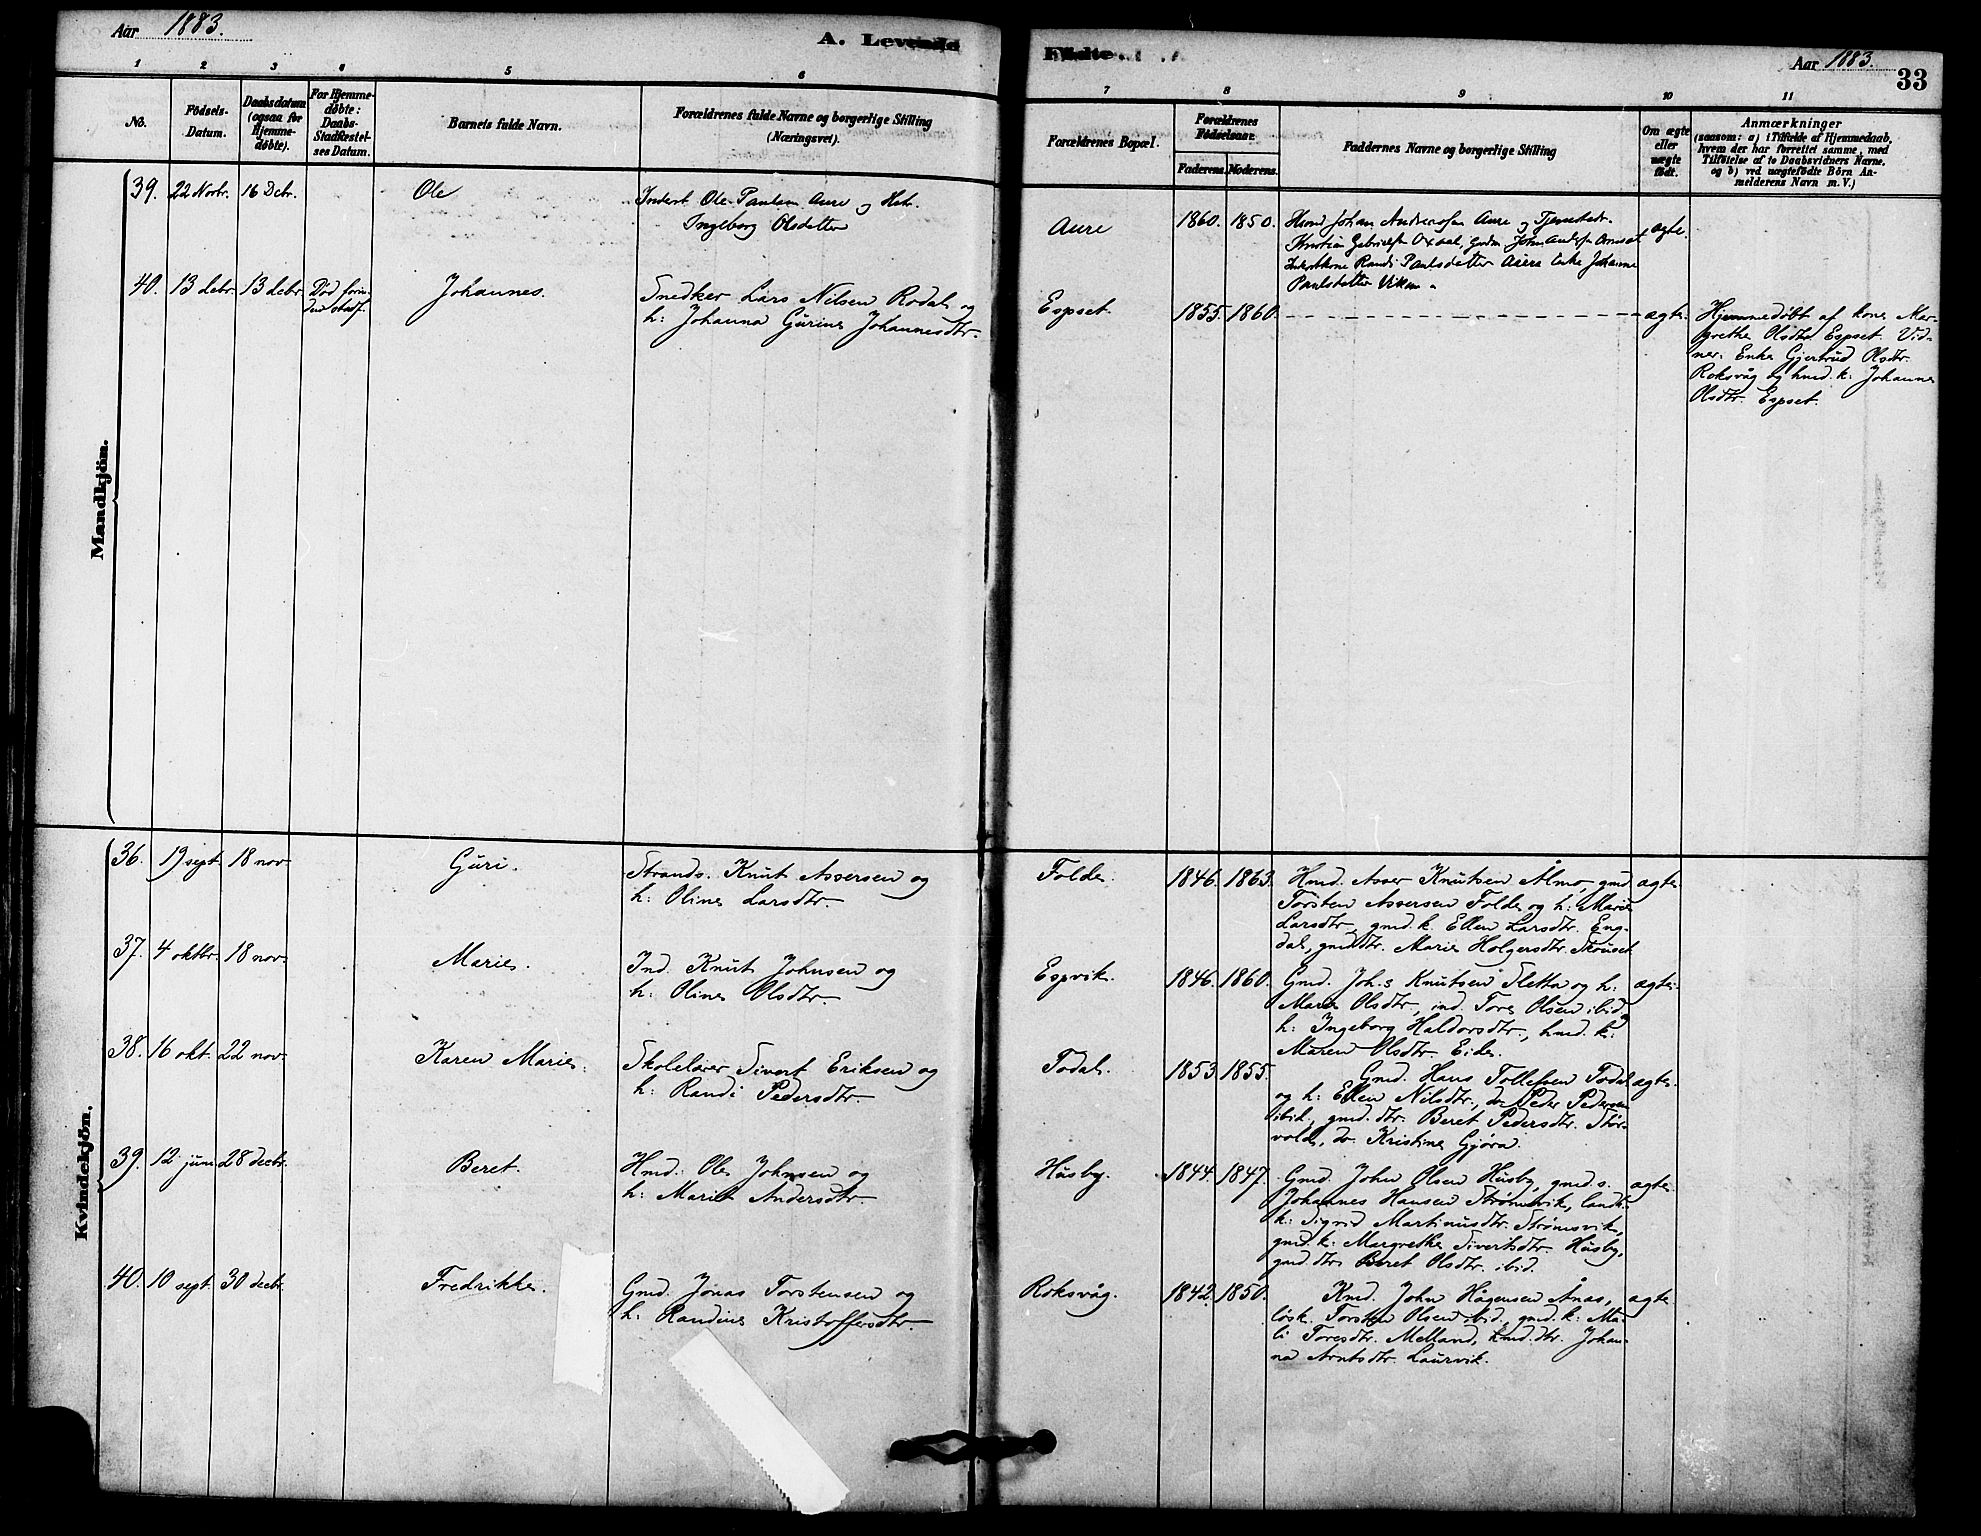 Aar 1883.
A. Levende Födte.
Aar 1883.
33
1 2 3 4 5 6 7 8 9 10 11
No.
Födsels-
Datum.
Daabsdatum
(ogsaa for
Hjemme-
döbte).
For Hjemme-
döbte:
Daabs-
Stadfæstel-
ses Datum.
Barnets fulde Navn.
Forældrenes fulde Navne og borgerlige Stilling
(Næringsvei).
Forældrenes Bopæl.
Forældrenes
Födselsaar.
Faderens. Moderens.
Faddernes Navne og borgerlige Stilling
Om ægte
eller
uægte
födt.
Anmærkninger
(saasom: a) i Tilfælde af Hjemmedaab,
hvem der har forrettet samme, med
Tilföielse af to Daabsvidners Navne,
og b) ved uægtefödte Börn An-
melderens Navn m. V.)
Mandkjön.
39. 22 Novbr. 16 Debr. Ole
Inderst Ole Paulsen Aure og Hst.
Ingeborg Olsdatter
Aure 1860. 1850.
Huusmd Johan Andreassen Aure og Tjenestedr.
Kristian Gabrielsen Oxaal, John Andersen
Inderstkone Randi Paulsdatter Aure Enke Johanne
Paulsdatter Viken.
ægte.
40. 13 debr. 13 debr. Død forin-
den stadf.
Johannes.
Snedker Lars Nilsen Rodal og
h: Johanna Gurine Johannesdtr.
Espset. 1855. 1860. ægte.
Hjemmedöbt af kone Mar-
grethe Olsdtr Espset. Vid-
ner: Enke Gjertrud Olsdtr.
Roksvåg og hmd. k: Johanne
Olsdtr. Espset.
Kvindekjön.
36. 19 sept. 18 nov. Guri.
Strands. Knut Assersen og
h: Oline Larsdtr.
Folde. 1846. 1863.
Hmd. Asser Knutsen Ålmo, gmd.
Torsten Assersen Folde og h: Marie
Larsdtr, gmd. k. Ellen Larsdtr. Eng-
dal, gmd.dtr. Marie Holgersdtr. Skouset
ægte.
37. 4 oktbr. 18 nov. Marie.
Ind. Knut Johnsen og
h: Oline Olsdtr
Espvik. 1846. 1860.
Gmd. Joh.s Knutsen Sletta og h:
Marie Olsdtr, ind. Tore Olsen ibid.
h: Ingeborg Haldorsdtr, hmd. k:
Maren Olsdtr. Eide.
ægte.
38. 16 okt. 22 nov. Karen Marie.
Skolelærer Sivert Eriksen og
h: Randi Pedersdtr.
Todal. 1853. 1855.
Gmd. Hans Tollefsen Todal
og h: Ellen Nilsdtr., do Peder Pedersen
ibid., gmd. dtr. Beret Pedersdtr. Stör-
vold, do. Kristine Gjöra.
ægte.
39. 12 juni 28 decbr. Beret.
Hmd. Ole Johnsen og
h: Marit Andersdtr
Husby. 1844. 1847.
Gmd. John Olsen Husby, gmd. s.
Johannes Hansen Strömsvik, landh.
k: Sigrid Martinusdtr. Strömsvik,
gmd. k: Margrethe Sivertsdtr. Husby,
gmd. dtr. Beret Olsdtr. ibid.
ægte.
40. 10 sept. 30 decbr. Fredrikke.
Gmd. Jonas Torstensen og
h: Randine Kristoffersdtr
Roksvåg. 1842. 1850.
Kmd. John Hågensen Ånæs,
lösk. Torsten Olsen ibid., gmd. k: Ma-
li Toresdtr. Melland, hmd. dtr. Johan-
na Arntsdtr. Laurvik.
ægte